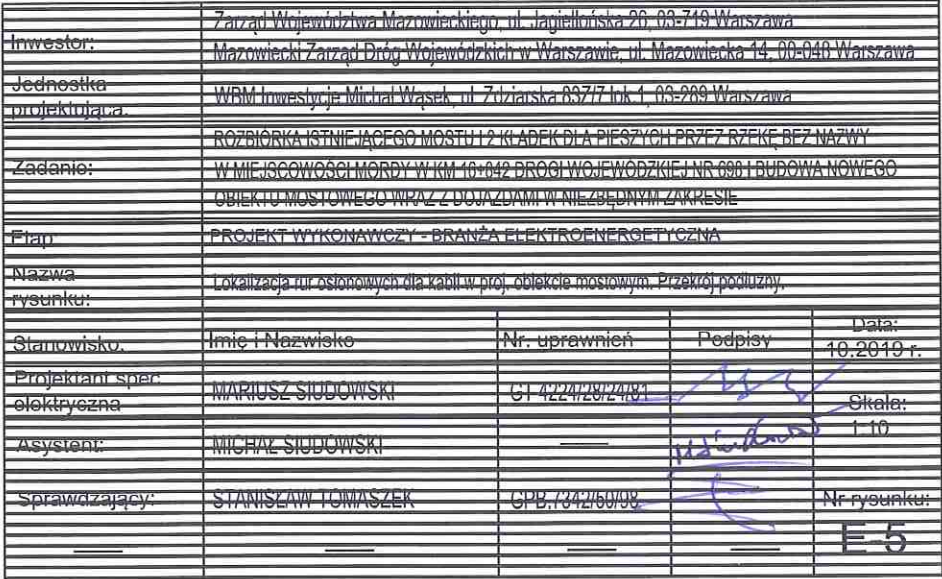 Inwestor:
Zarząd Województwa Mazowieckiego, ul. Jagiellońska 26, 03-719 Warszawa
Mazowiecki Zarząd Dróg Wojewódzkich w Warszawie, ul. Mazowiecka 14, 00-048 Warszawa
Jednostka
projektująca:
WBM Inwestycje Michał Wąsek, ul. Zdziarska 837/7 lok.1, 03-289 Warszawa
Zadanie:
ROZBIÓRKA ISTNIEJĄCEGO MOSTU I 2 KŁADEK DLA PIESZYCH PRZEZ RZEKĘ BEZ NAZWY
W MIEJSCOWOŚCI MORDY W KM 16+042 DROGI WOJEWÓDZKIEJ NR 698 I BUDOWA NOWEGO
OBIEKTU MOSTOWEGO WRAZ Z DOJAZDAMI W NIEZBĘDNYM ZAKRESIE
Etap
PROJEKT WYKONAWCZY - BRANŻA ELEKTROENERGETYCZNA
Nazwa
rysunku:
Lokalizacja rur osłonowych dla kabli w proj. obiekcie mostowym. Przekrój podłużny.
Stanowisko:
Imię i Nazwisko
Nr. uprawnień
Podpisy
Data:
10.2019 r.
Projektant spec.
elektryczna
MARIUSZ SIUDOWSKI
GT 4224/28/24/81
Skala:
1:10
Asystent:
MICHAŁ SIUDOWSKI
Sprawdzający:
STANISŁAW TOMASZEK
GPB.7342/60/98
Nr rysunku:
E-5